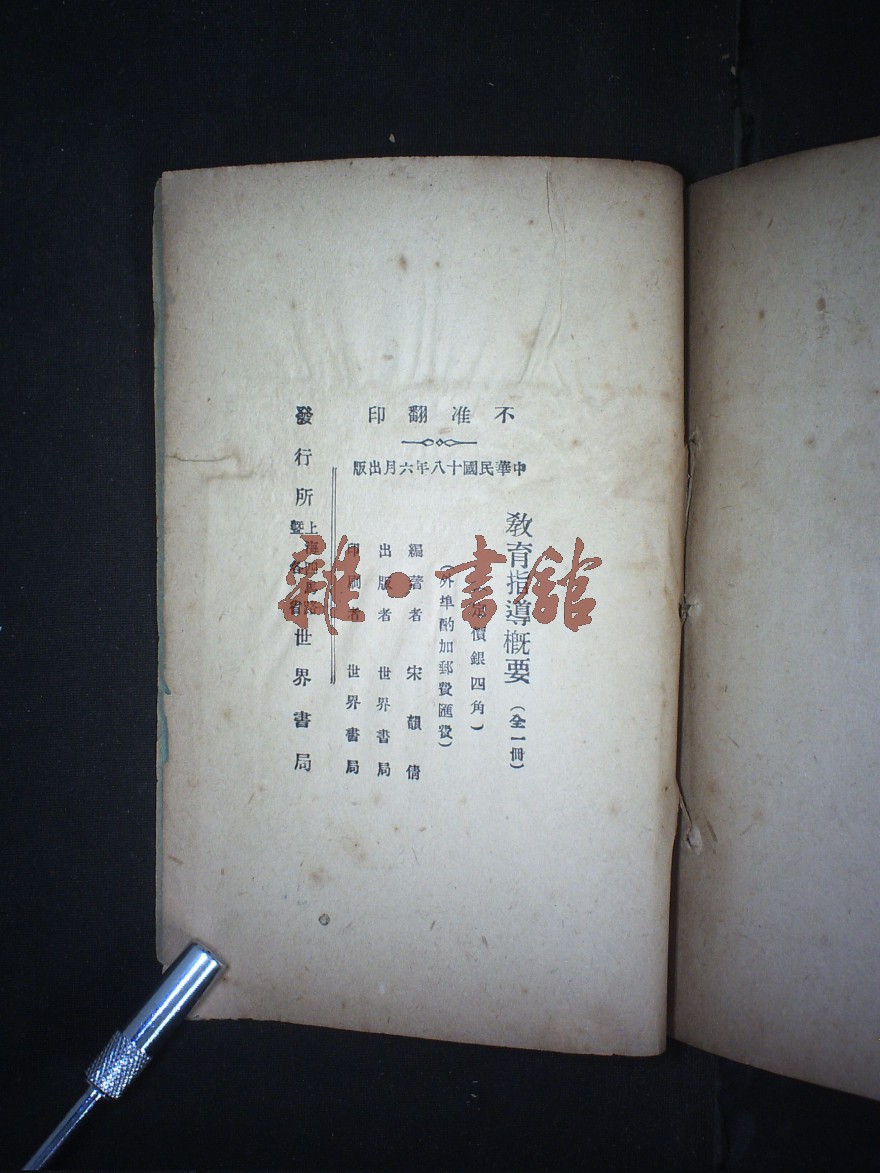 不准翻印
中華民國十八年六月出版
教育指導概要（全一冊）
價銀四角）
（外埠酌加郵費匯費）
編著者 宋額倩
出版者 世界書局
印刷者 世界書局
發行所 上海四馬路暨各省 世界書局
雜·書館